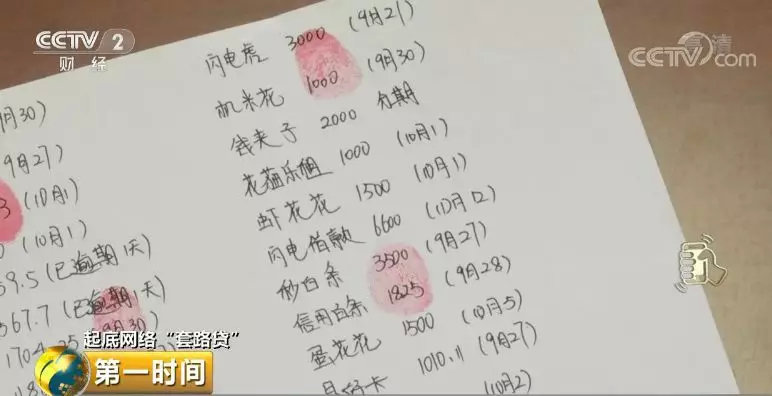 CCTV 2
财经
高清
CCTV.com
闪电虎 3000 (9月21)
机米花 1000 (9月30)
钱夹子 2000 分期
花猫乐租 1000 (10月1)
虾花花 1500 (10月1)
闪电借款 6600 (10月12)
秒白条 3500 (9月27)
信用白条 1825 (9月28)
蛋花花 1500 (10月5)
1010.11 (9月27)
(10月2)
9月30)
9月27)
(10月1
(10月1)
59.5 (已逾期1天)
567.7 (已逾期1天)
1704.25 9月30)
起底网络“套路贷”
第一时间